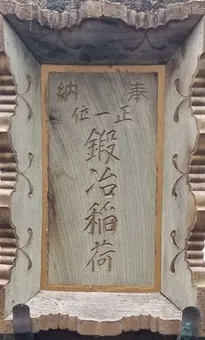 奉納
正一位
鍛冶稲荷